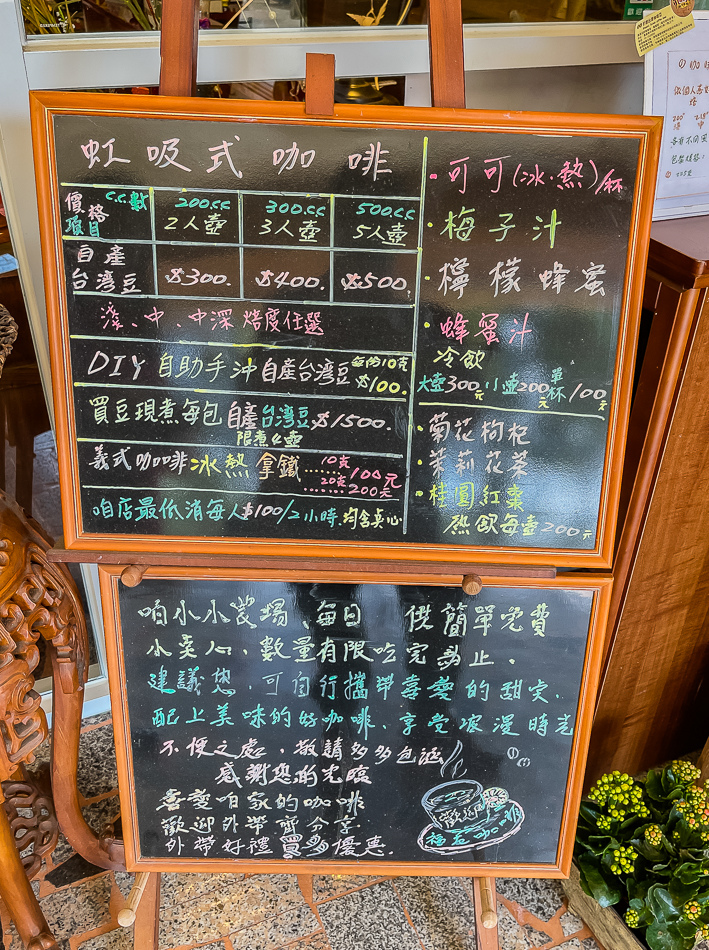 虹吸式咖啡
價格 c.c.數 200cc 300cc 500cc
項目 2人壺 3人壺 5人壺
自產
台灣豆 $300. $400. $500.
淺、中、中深焙度任選
DIY自助手沖自產台灣豆 每份10克 $100.
買豆現煮每包自產台灣豆$1500.
限煮4壺
義式咖啡冰熱拿鐵 10克……100元
20克……200元
咱店最低消每人$100/2小時.均含點心
·可可(冰·熱)/杯
·梅子汁
·檸檬蜂蜜
·蜂蜜汁
冷飲
大壺300元小壺200元單杯100元
·菊花枸杞
·茉莉花茶
·桂圓紅棗
熱飲每壺200元
咱小小農場、每日 供簡單免費
小點心,數量有限吃完為止.
建議您,可自行攜帶喜愛的甜點,
配上美味的好咖啡.享受浪漫時光
不便之處,敬請多多包涵
感謝您的光臨
喜愛咱家的咖啡
歡迎外帶齊分享
外帶好禮買多優惠.
歡迎
咖啡